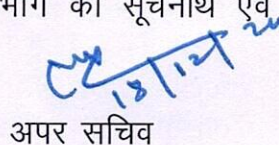 भाग को सूचनार्थ एवं
18/12/20
अपर सचिव